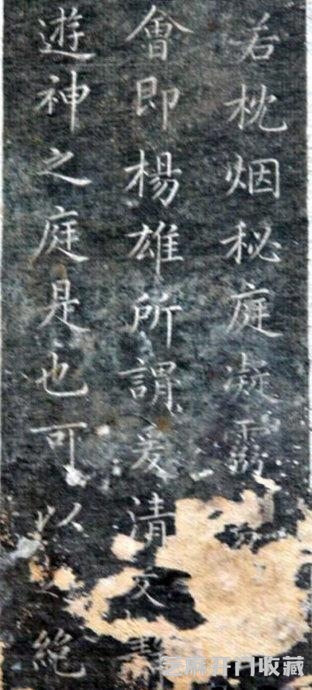 若枕烟秘庭凝
會即楊雄所謂爰清
遊神之庭是也可以絶
收藏